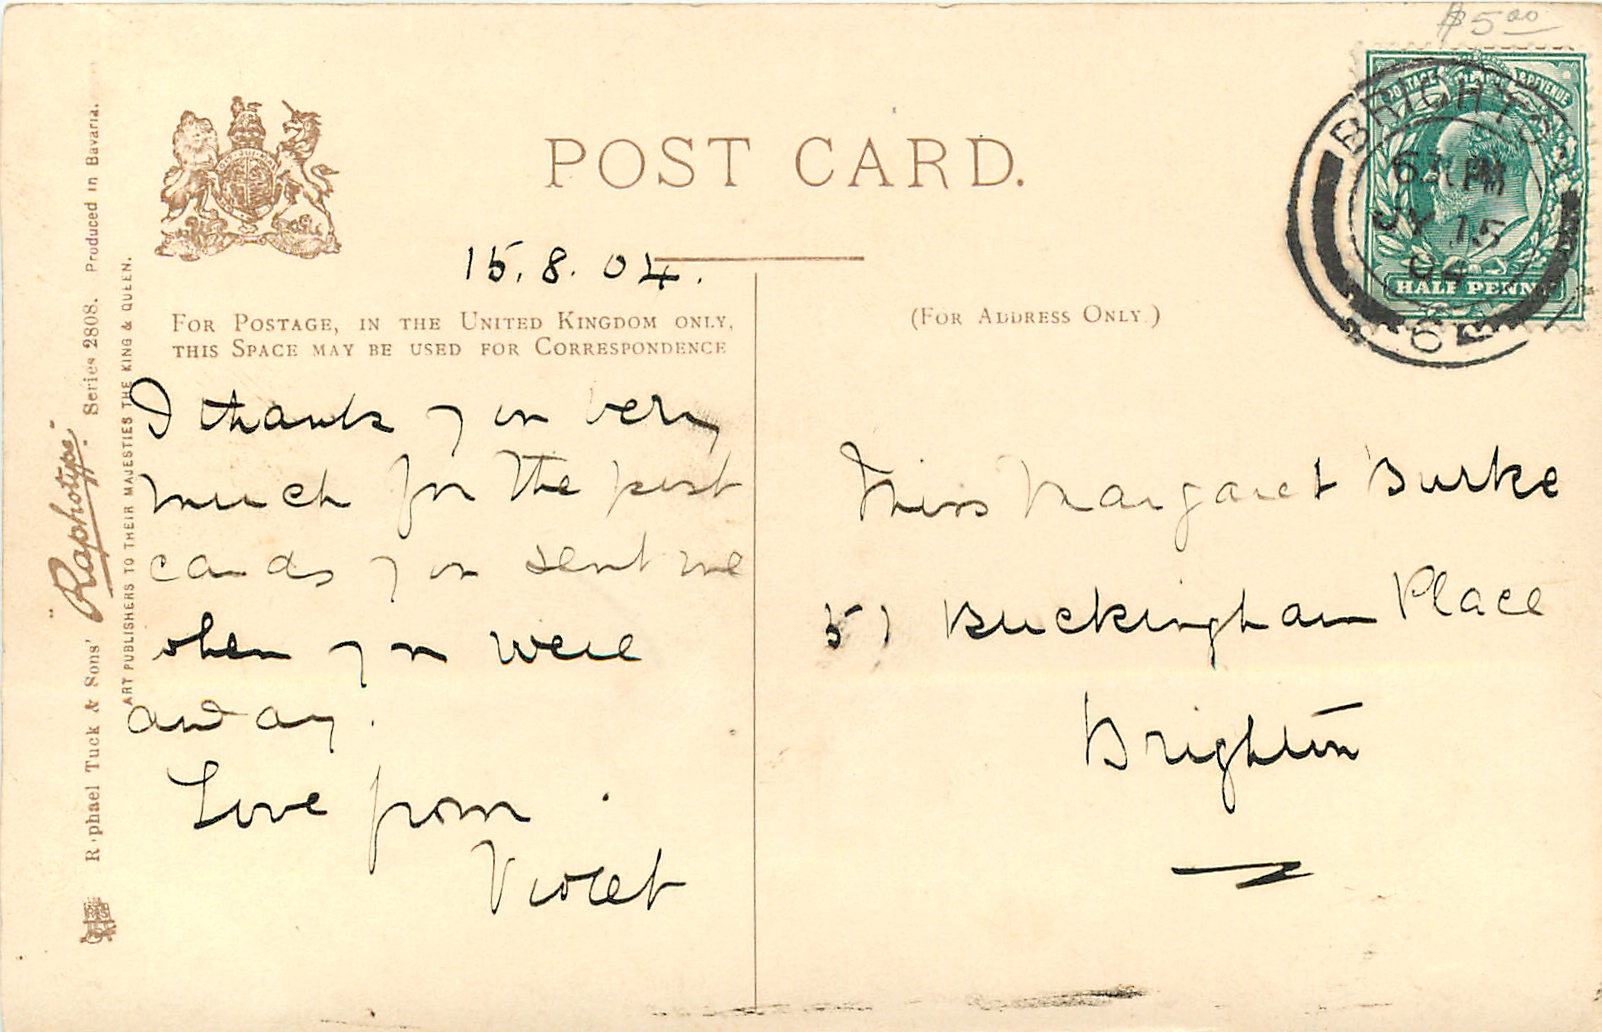 $5.00
POST CARD.
15.8.04.
FOR POSTAGE, IN THE UNITED KINGDOM ONLY,
THIS SPACE MAY BE USED FOR CORRESPONDENCE
(FOR ADDRESS ONLY.)
I thank you very
much for the post
cards you sent me
when you were
away.
Love from
Violet
Miss Margaret Burke
51 Buckingham Place
Brighton
POSTAGE & REVENUE
HALF PENNY
BRIGHTO
PM
JY 15
04
6
Raphael Tuck & Sons' "Raphotype" Series 2808. Produced in Bavaria.
ART PUBLISHERS TO THEIR MAJESTIES THE KING & QUEEN.